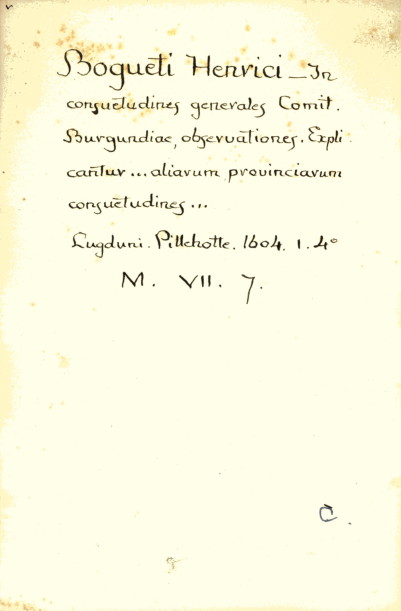 Bogueti Henrici _ In
consuetudines generales Comit.
Burgundiae, observationes. Expli
cantur ... aliarum provinciarum
consuetudines ...
Lugduni. Pillehotte. 1604. 1. 4°
M. VII. 7.
C.